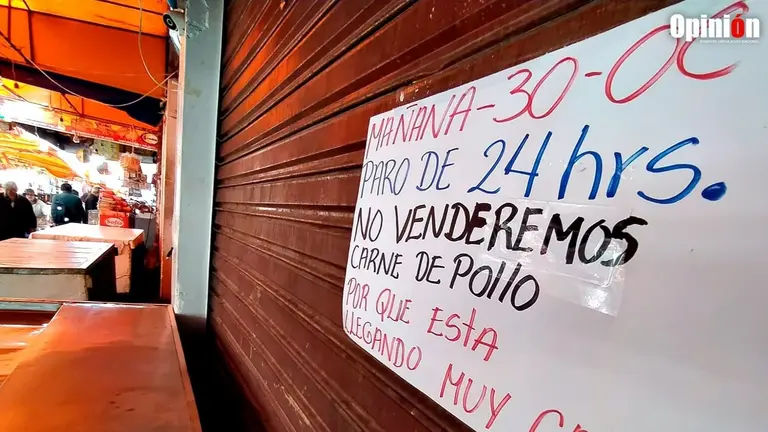 Opinión
MAÑANA-30-OC
PARO DE 24 hrs.
NO VENDEREMOS
CARNE DE POllO
POR QUE ESTA
LLEGANDO MUY